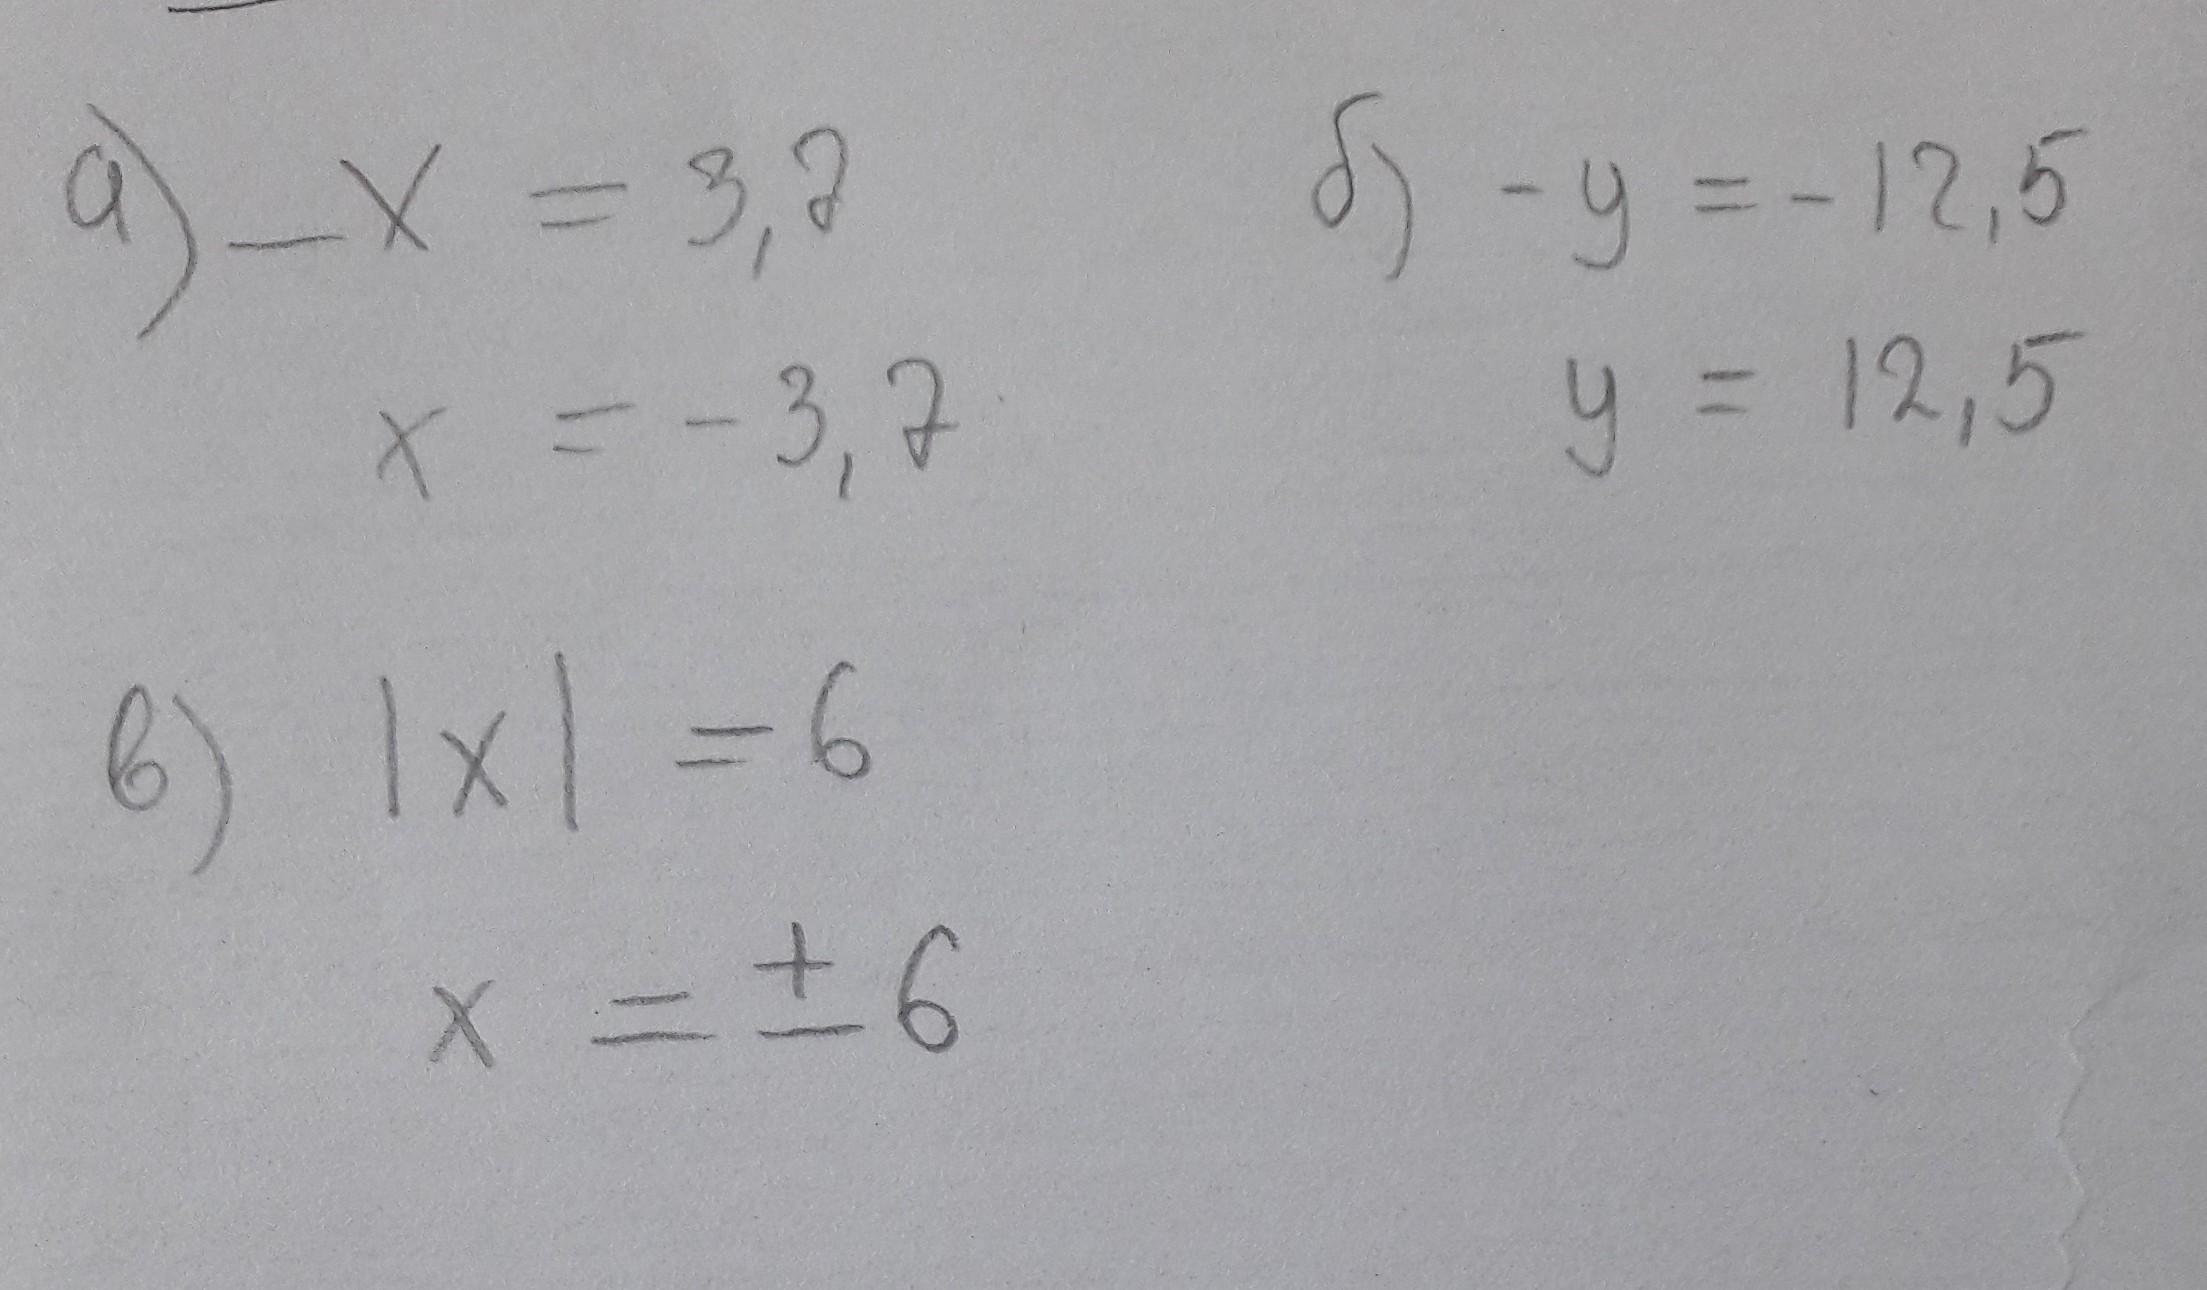 а) -x = 3,7
x = -3,7
б) -y = -12,5
y = 12,5
в) |x| = 6
x = ±6